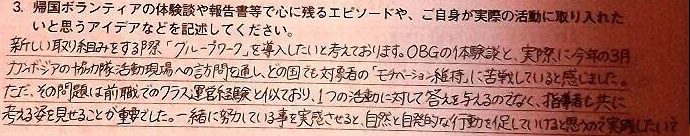 3. 帰国ボランティアの体験談や報告書等で心に残るエピソードや、ご自身が実際の活動に取り入れた
いと思うアイデアなどを記述してください。
新しい取り組みをする際「グループワーク」を導入したいと考えております。OBGの体験談と、実際に今年の3月
カンボジアの協力隊活動現場への訪問を通し、どの国でも対象者の「モチベーション維持」に苦戦していると感じました。
ただ、その問題は前職でのクラス運営経験と似ており、1つの活動に対して答えを与えるのでなく、指導者も共に
考える姿を見せることが重要でした。一緒に努力している事を実感させると、自然と自発的な行動を促していけると思うので実践したい。